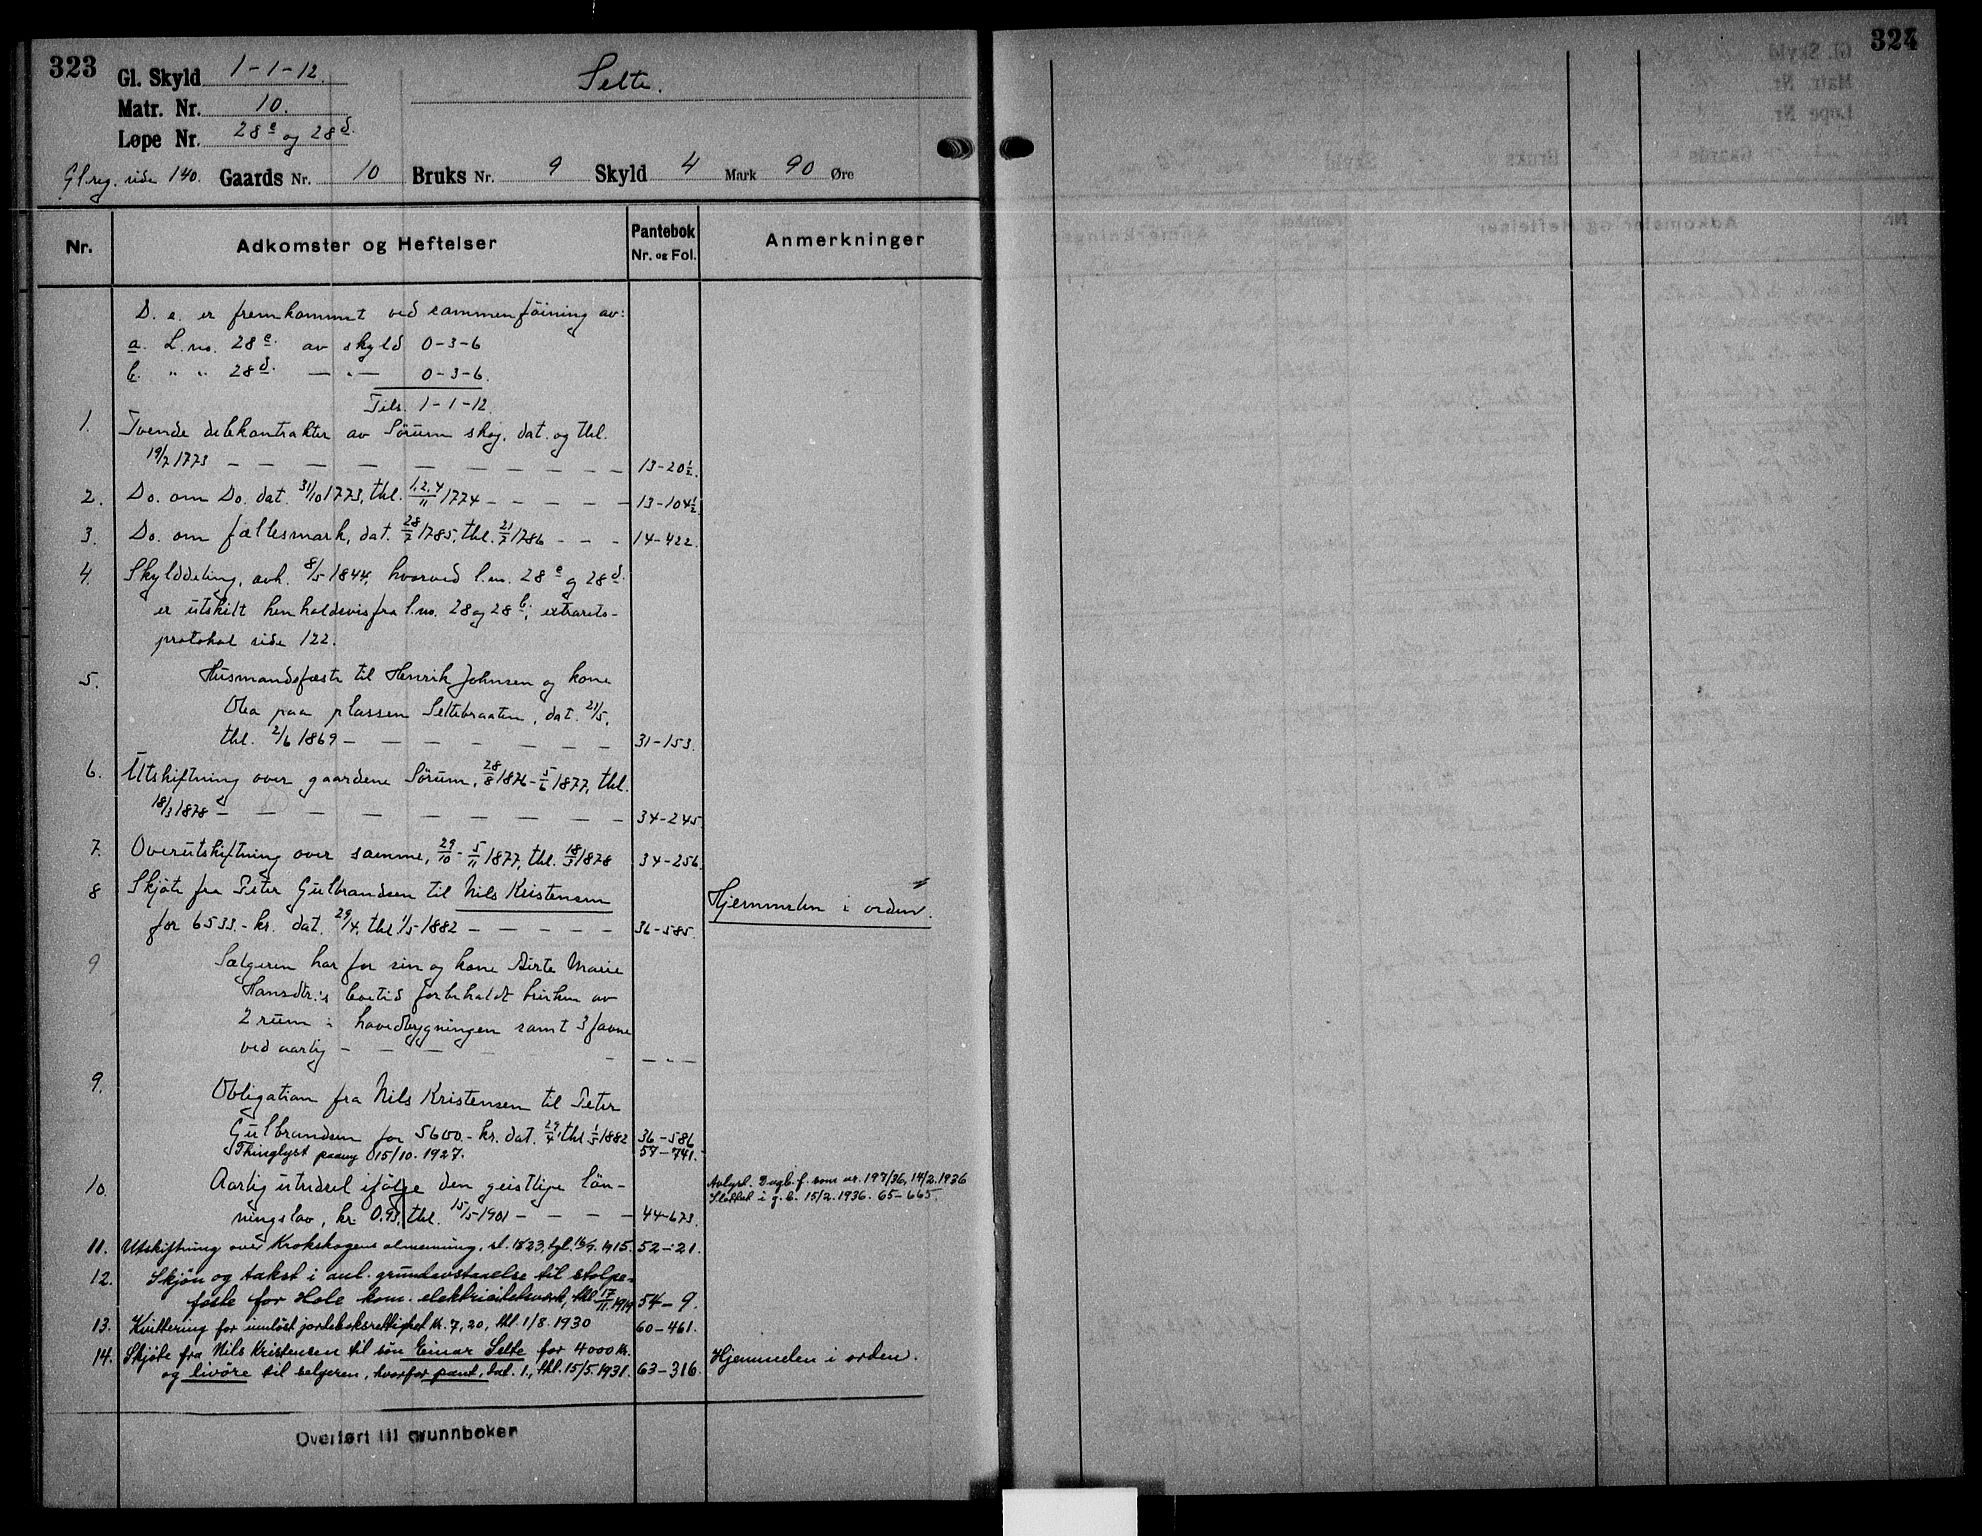 323
324
Gl. Skyld 1-1-12.
Selte.
Matr. Nr. 10.
Løpe Nr. 28c og 28d.
Gl. reg. side 140. Gaards Nr. 10 Bruks Nr. 9 Skyld 4 Mark 90 Øre
Nr. Adkomster og Heftelser Pantebok Nr. og Fol. Anmerkninger
D. e. er fremkommet ved sammenføining av:
a. L.no. 28c. av skyld 0-3-6
b. " " 28d. — " — 0-3-6.
Tils. 1-1-12.
1. Tvende delekontrakter av Sørum skog, dat. og thl.
19/7 1773 — — — — — — — — 13-20½.
2. Do. om Do. dat. 31/10 1773, thl. 1,2,4/11 1774 — — — — — 13-104½.
3. Do. om fællesmark, dat. 28/7 1785, thl. 21/7 1786 — — — 14-422.
4. Skylddeling, avh. 8/5 1844, hvorved l.no. 28c og 28d.
er utskilt henholdsvis fra l.no. 28 og 28b; extrarets-
protokol side 122.
5. Husmandsfæste til Henrik Johnsen og kone
Olea paa plassen Seltebraaten, dat. 21/5,
thl. 2/6 1869 — — — — — — 31-153.
6. Utskiftning over gaardene Sørum, 28/8 1876 - 5/6 1877, thl.
18/3 1878 — — — — — — — — 34-245.
7. Overutskiftning over samme, 29/10 - 5/11 1877, thl. 18/3 1878 34-256.
8 Skjøte fra Peter Gulbrandsen til Nils Kristensen
for 6533.- kr. dat. 29/4, thl. 1/5 1882 — — — — — 36-585. Hjemmelen i orden.
9 Sælgeren har for sin og kone Birte Marie
Hansdtr.'s levetid forbeholdt bruken av
2 rum i hovedbygningen samt 3 favne
ved aarlig — — — — — — " —
9. Obligation fra Nils Kristensen til Peter
Gulbrandsen for 5600.- kr. dat. 29/4, thl. 1/5 1882 36-586
Thinglyst paany 15/10. 1927. 57-741.
10. Aarlig utredsel ifølge den geistlige løn-
ningslov, kr. 0.93, thl. 15/5 1901 — — — — 44-673.
Avlyst. Dagb. f. som nr. 197/36, 14/2. 1936
Slettet i g.b. 15/2. 1936. 65-665.
11. Utskiftning over Krokskogens almenning, sl. 1823, tgl. 16/9. 1915. 52-21.
12. Skjøn og takst i anl. grundavstaaelse til stolpe-
feste for Hole kom. elektricitetsverk, thl. 17/11. 1919 54-9.
13. Kvittering for innløst jordeboksrettighet kr. 7,20, thl. 1/8. 1930 60-461.
14. Skjøte fra Nils Kristensen til sön Einar Selte for 4000 kr.
og livöre til selgeren, hvorfor pant, dat. 1., thl. 15/5. 1931. 63-316. Hjemmelen i orden.
Overført til grunnboken